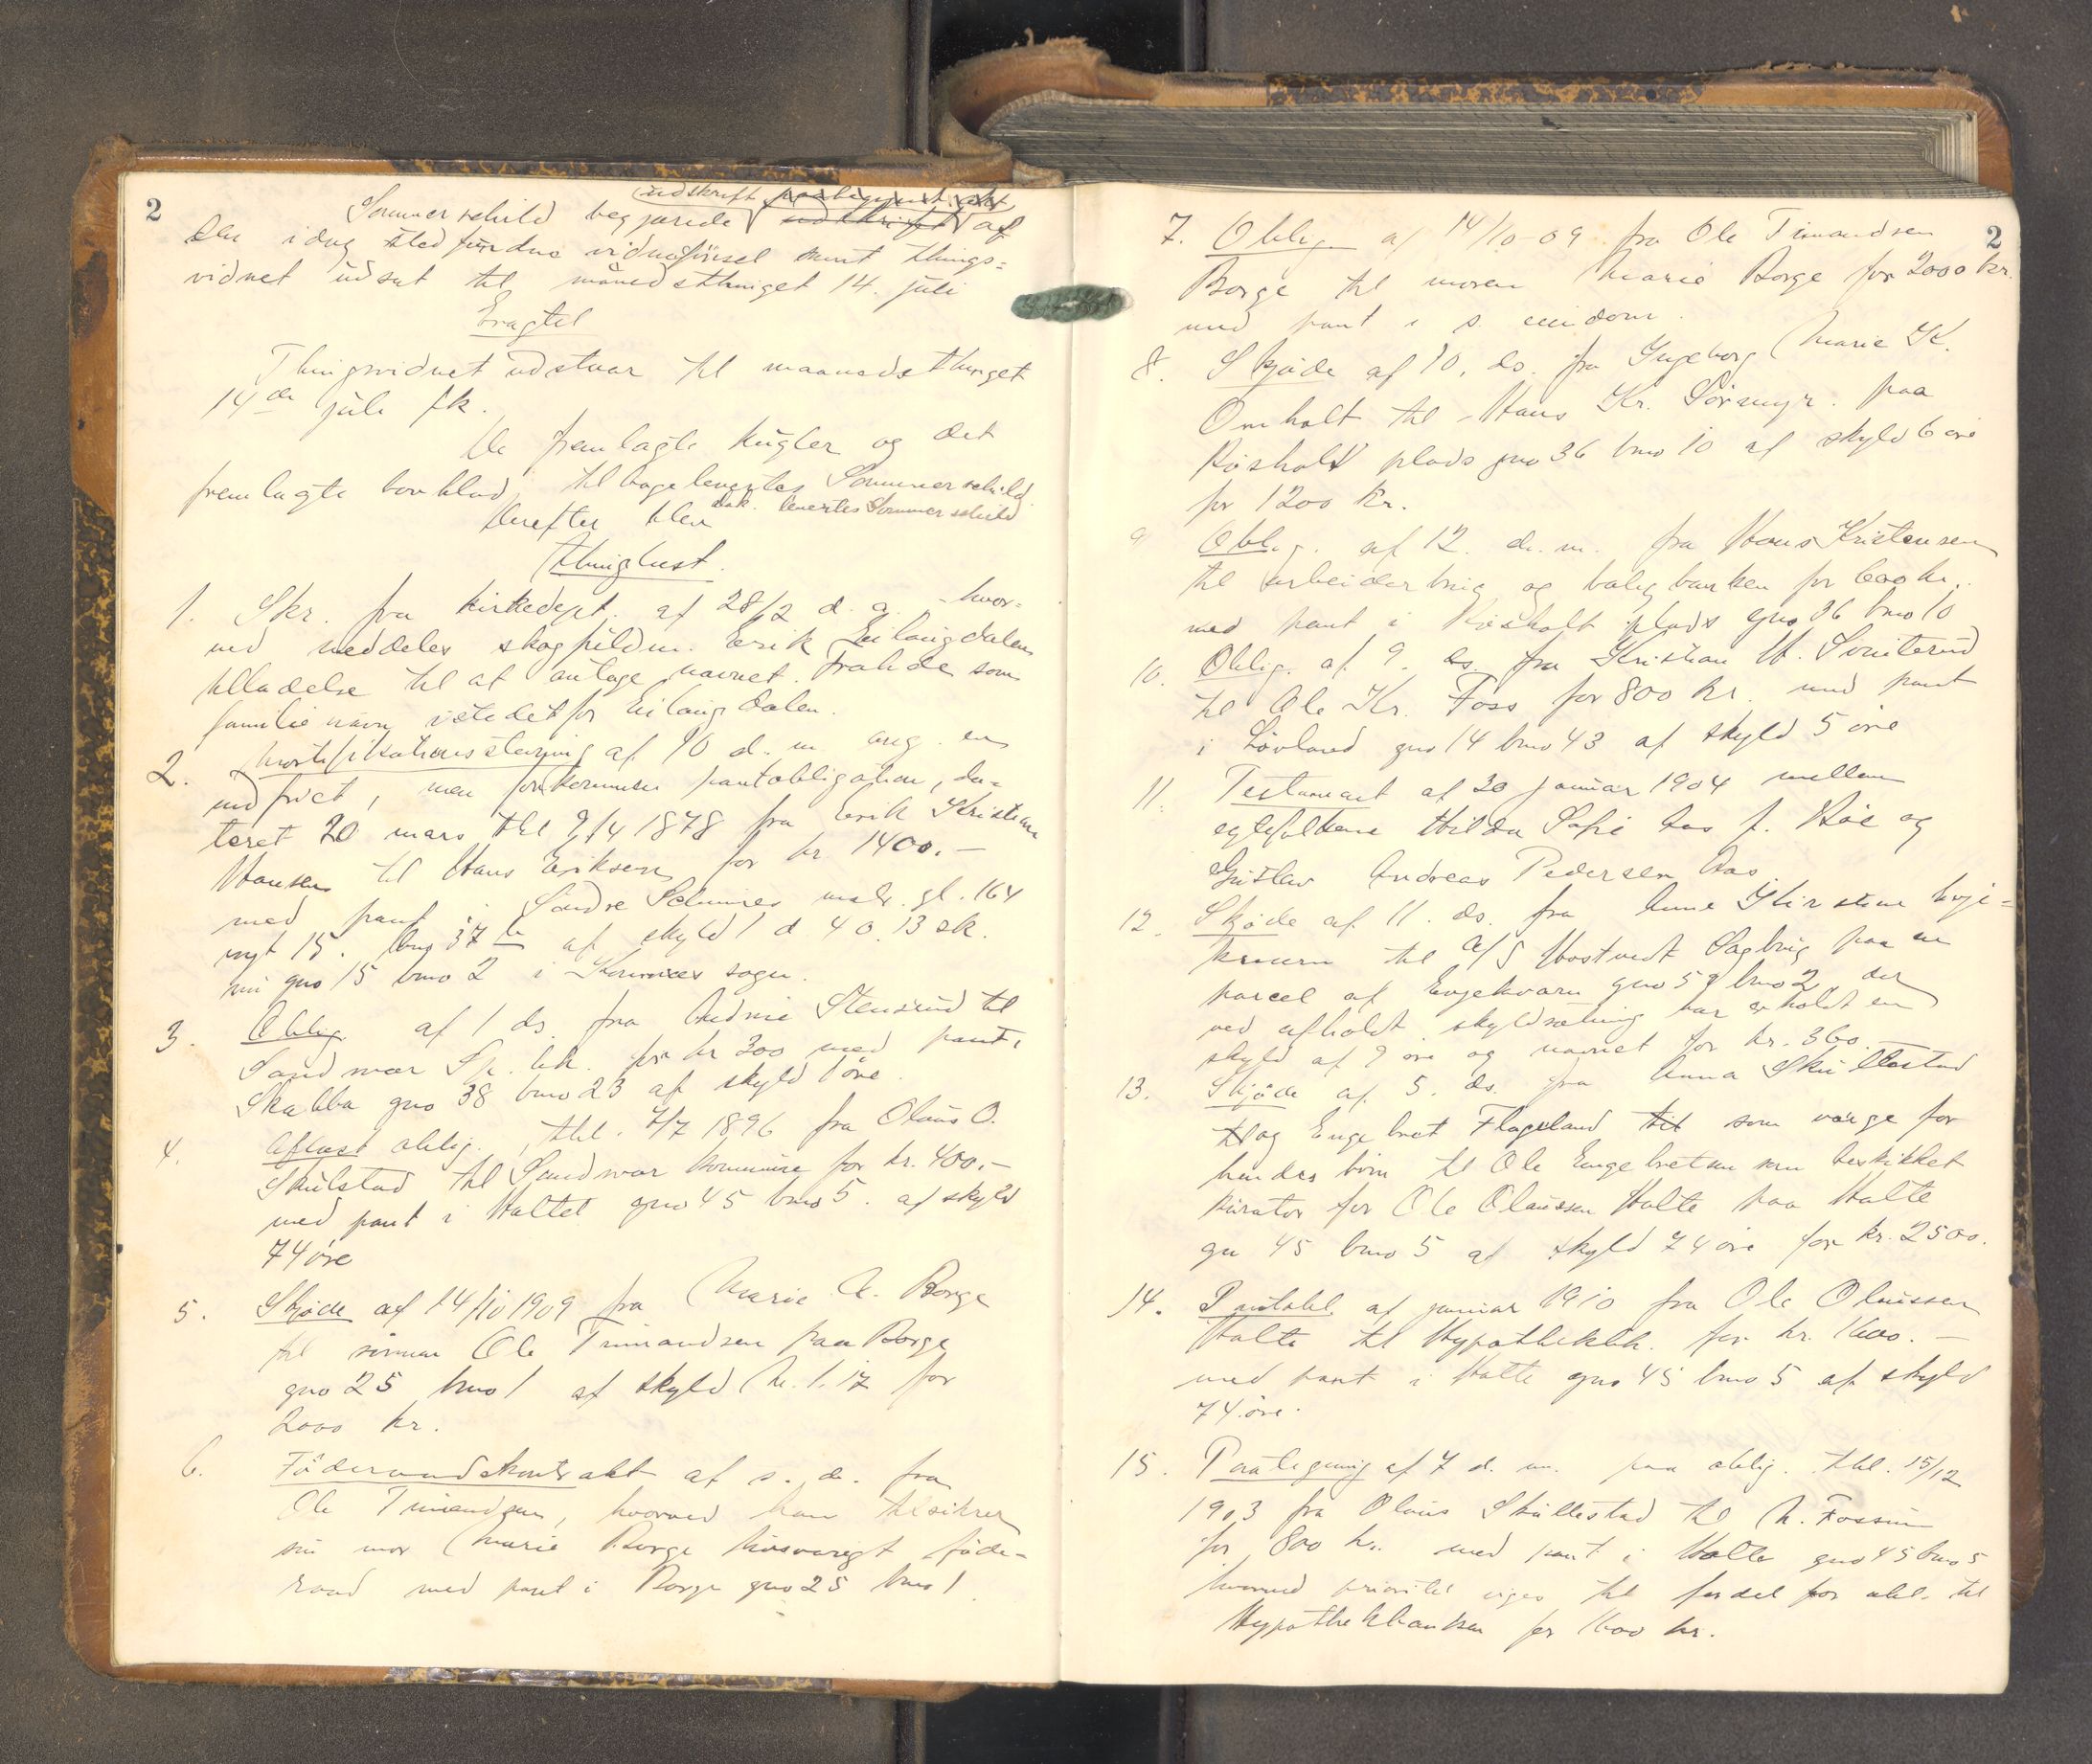 2
udskrift
Sommerschild begjærede udskrift af
den idag stedfundne vidneførsel samt things=
vidnet udsat til månedsthinget 14. juli
Eragtet
Thingsvidnet udstaar til maanedsthinget
14de juli fk.
De fremlagte kugler og det
fremlagte bonblad tilbageleveredes Sommerschild
dok. levertes Sommerschild
Derefter blev
thinglæst.
1. Skr. fra kirkedept. af 28/2 d. a. hvor=
ved meddeles skogfuldm. Erik Eilaugdalen
tilladelse til at antage navnet som
familienavn istedetfor Eilaugdalen.
2. Mortifikationsstevning af 10 d. m ang. en
indfriet, men forkommen pantobligation, da=
teret 20 mars thl 9/4 1878 fra Erik Kristian
Hansen til Hans Eriksen for kr 1400.-
med pant i Søndre matr. gl. 164
nyt 15. lno 37 b af skyld 1 d 4 o. 13 sk.
nu gno 15 bno 2 i Komnes sogn.
3. Oblig. af 1 ds. fra Stensrud til
Sandsvær Sp. bk. for kr 300 med pant i
Skabba gno 38 bno 23 af skyld 1 øre.
4. Aflæst oblig. thl. 7/7 1896 fra Olaus O.
Skulstad til Sandsvær kommune for kr. 400.-
med pant i Haltet gno 45 bno 5. af skyld
74 øre
5. Skjøde af 14/10 1909 fra Marie A. Borge
til sønnen Ole Timandsen paa Borge
gno 25 bno 1 af skyld M. 1.17 for
2000 kr.
6. Føderaadskontrakt af s. d. fra
Ole Timandsen, hvorved han tilsikrer
sin mor Marie Borge føde-
raad med pant i Borge gno 25 bno 1.
2
7. Oblig af 14/10-09 fra Ole Timandsen
Borge til moren Marie Borge for 2000 kr.
med pant i s. eiendom.
8. Skjøde af 10. ds. fra Ingeborg Marie K.
Omholt til Hans Kr. Sørmyr. paa
Røsholt plads gno 36 bno 10 af skyld 6 øre
for 1200 kr.
9 Oblig. af 12. d. m. fra Hans Kristensen
til arbeiderbrug og boligbanken for 600 kr.
med pant i Røsholt plads gno 36 bno 10
10. Oblig. af 9. ds. fra Kristian H.
til Ole Kr. Foss for 800 kr. med pant
i Løvland gno 14 bno 43 af skyld 5 øre
11. Testament af 30 januar 1904 mellem
egtefolkene Hilda Sofie Aas f. og
Gustav Andreas Pedersen Aas
12. Skjøde af 11. ds. fra Anne Kirstine
til A/S Hostvedt Sagbrug paa en
parcel af gno 59 bno 2, der
ved afholdt skyldsætning har erholdt en
skyld af 9 øre og navnet for kr. 360.-
13. Skjøde af 5. ds. fra Anna Skullestad
til og Engebret Flageland til som værge for
hendes børn til Ole Engebretsen som beskikket
kurator for Ole Olaussen Halte paa Halte
gn 45 bno 5 af skyld 74 øre for kr. 2500.
14. Pantobl. af januar 1910 fra Ole Olaussen
Halte til Hypothekbk. for kr. 1600.-
med pant i Halte gno 45 bno 5 af skyld
74 øre.
15. Paategning af 7 d. m. paa oblig. thl. 15/12
1903 fra Olaus Skullestad til N. Fossum
for 800 kr. med pant i Halte gno 45 bno 5
hvorved prioritet viges til fordel for obl. til
Hypothekbanken for 1600 kr.